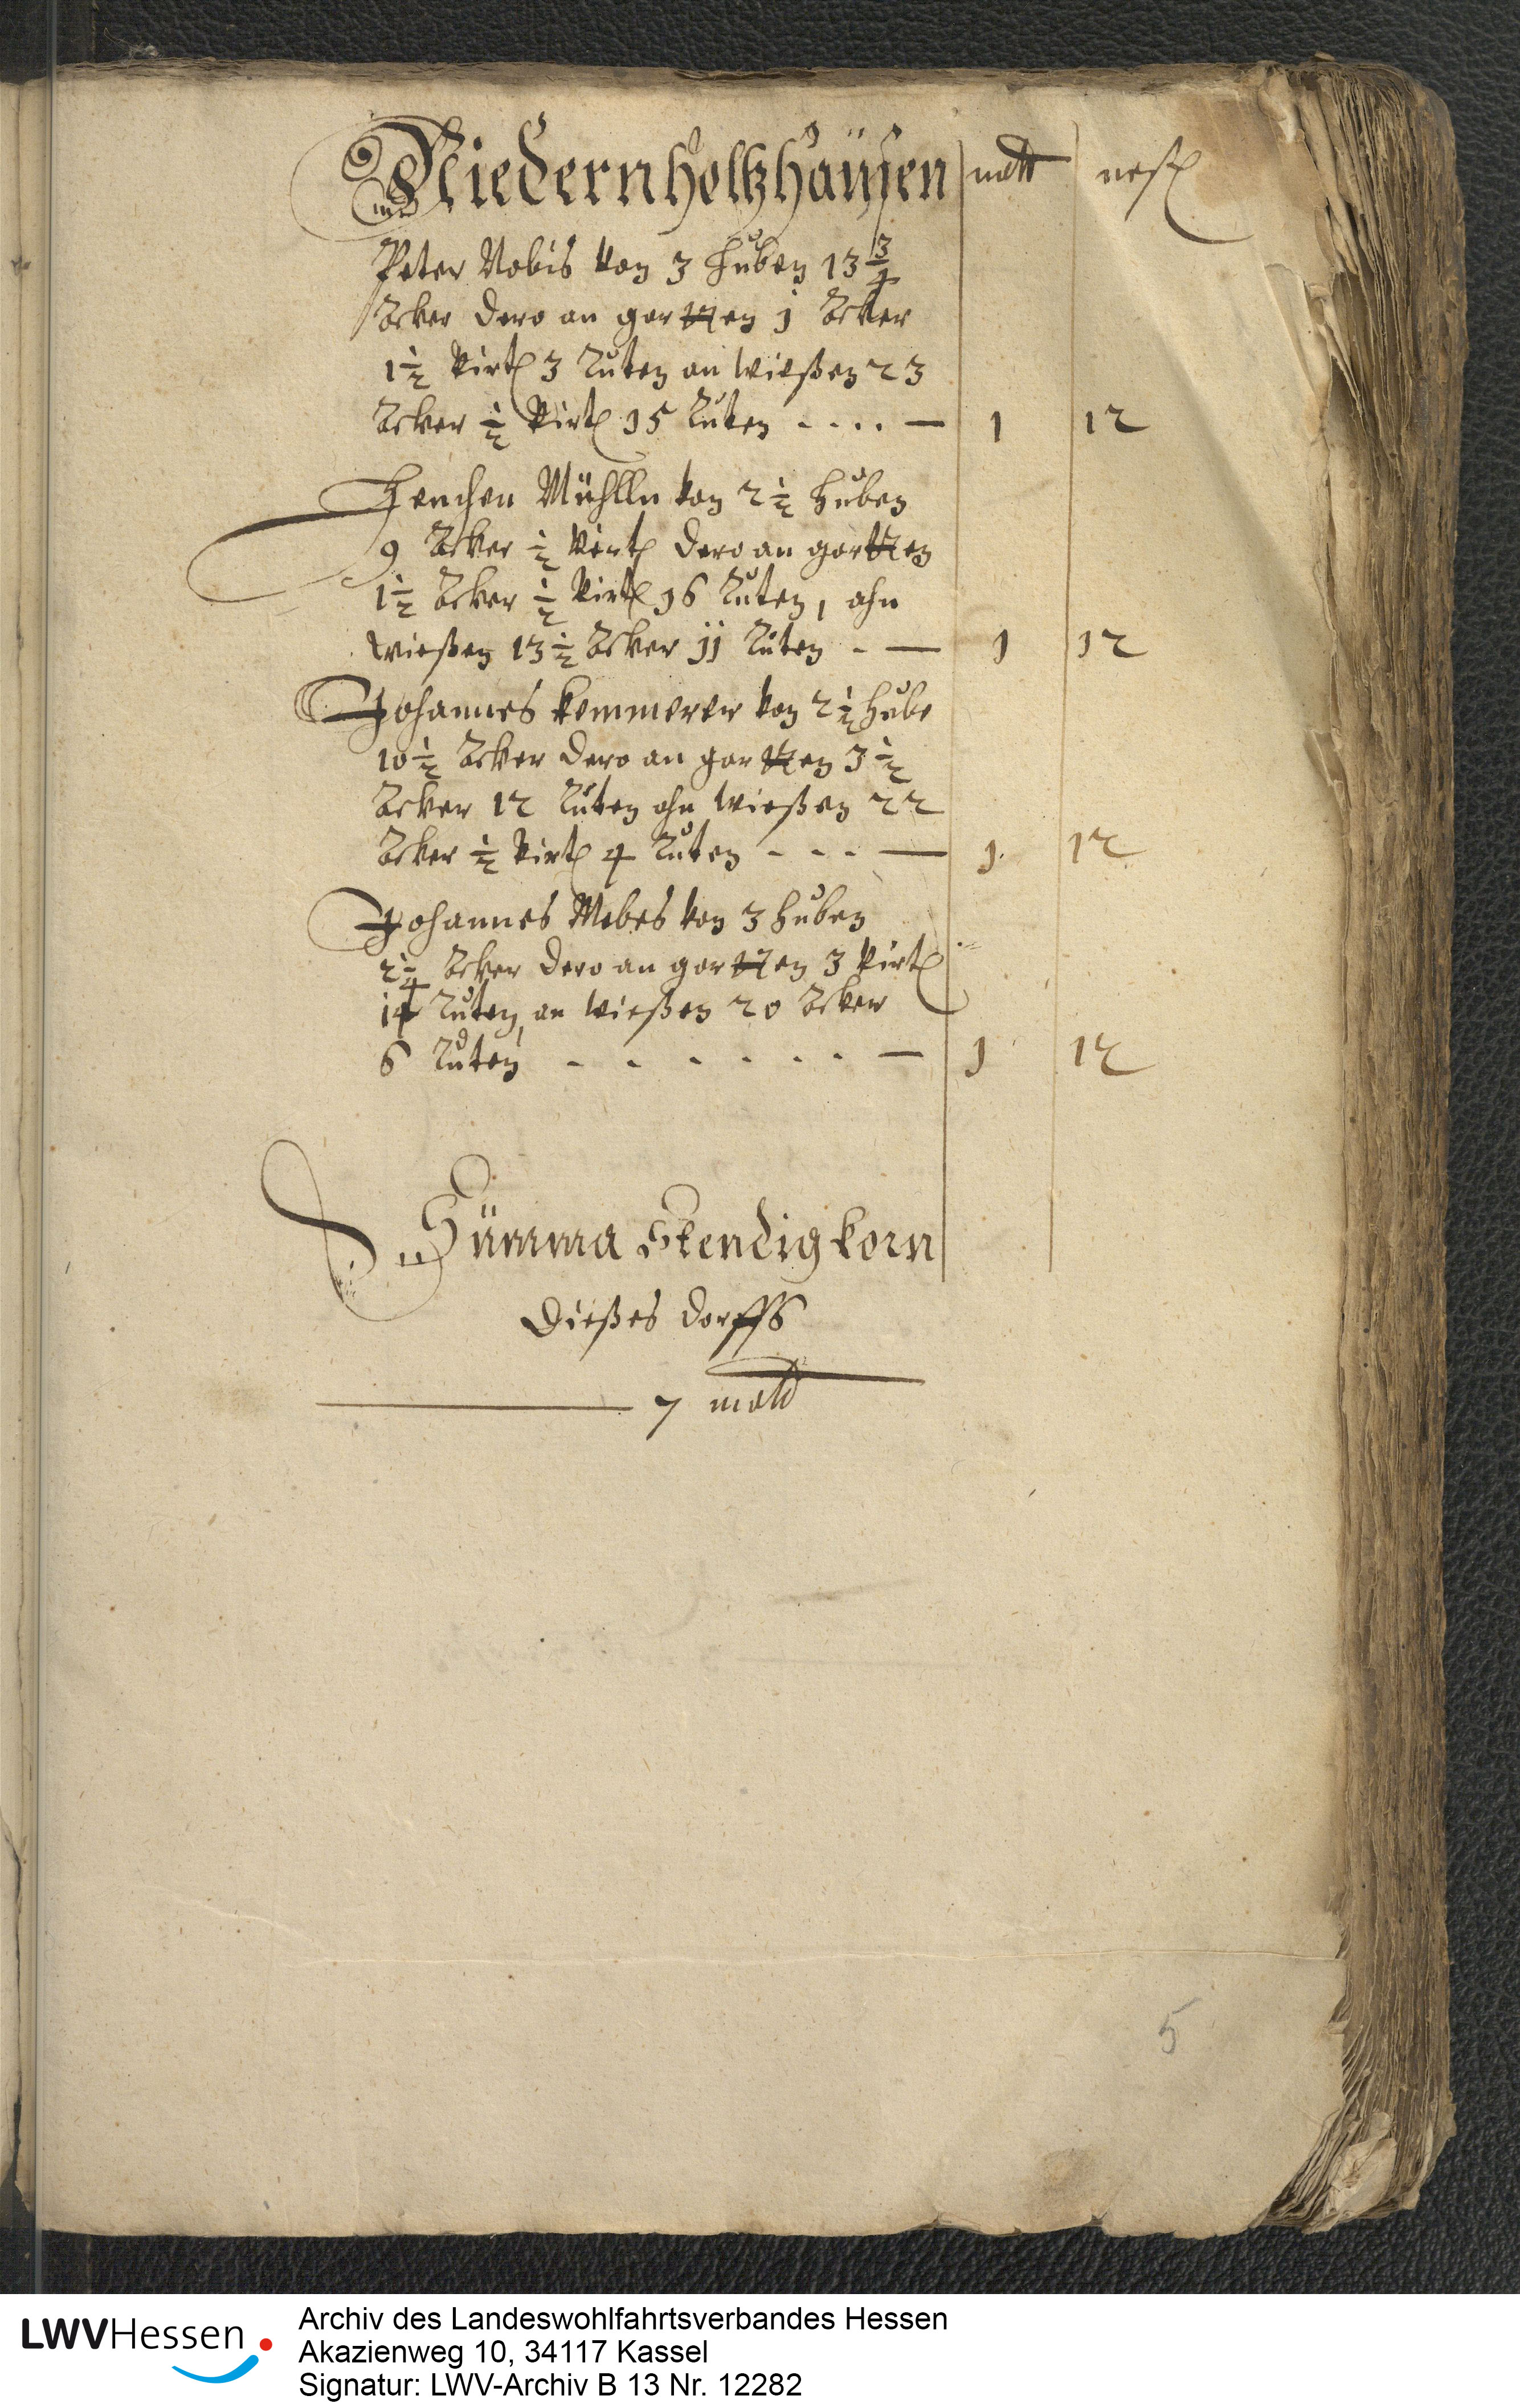 Niedernholtzhaußen malt mesch
Peter Nobis von 3 huben 13 3/4
Acker dero an gartten 1 Acker
1 1/2 virt 3 Ruten an wießen 23
Acker 1/2 virt 15 Ruten . . . . — 1 12
Henchen Mühlln von 2 1/2 huben
9 Acker 1/2 virt dero an gartten
1 1/2 Acker 1/2 virt 16 Ruten, ahn
wießen 13 1/2 Acker 11 Ruten - — 1 12
Johannes kemmerer von 2 1/2 hube
10 1/2 Acker dero an gartten 3 1/2
Acker 12 Ruten ahn wießen 22
Acker 1/2 virt 4 Ruten - - - — 1 12
Johannes Mebes von 3 huben
2 1/4 Acker dero an gartten 3 virt
14 Ruten, an wießen 20 Acker
6 Ruten - - - - - - — 1 12
Summa stendig korn
dießes dorffs
7 mald
5
LWVHessen
Archiv des Landeswohlfahrtsverbandes Hessen
Akazienweg 10, 34117 Kassel
Signatur: LWV-Archiv B 13 Nr. 12282